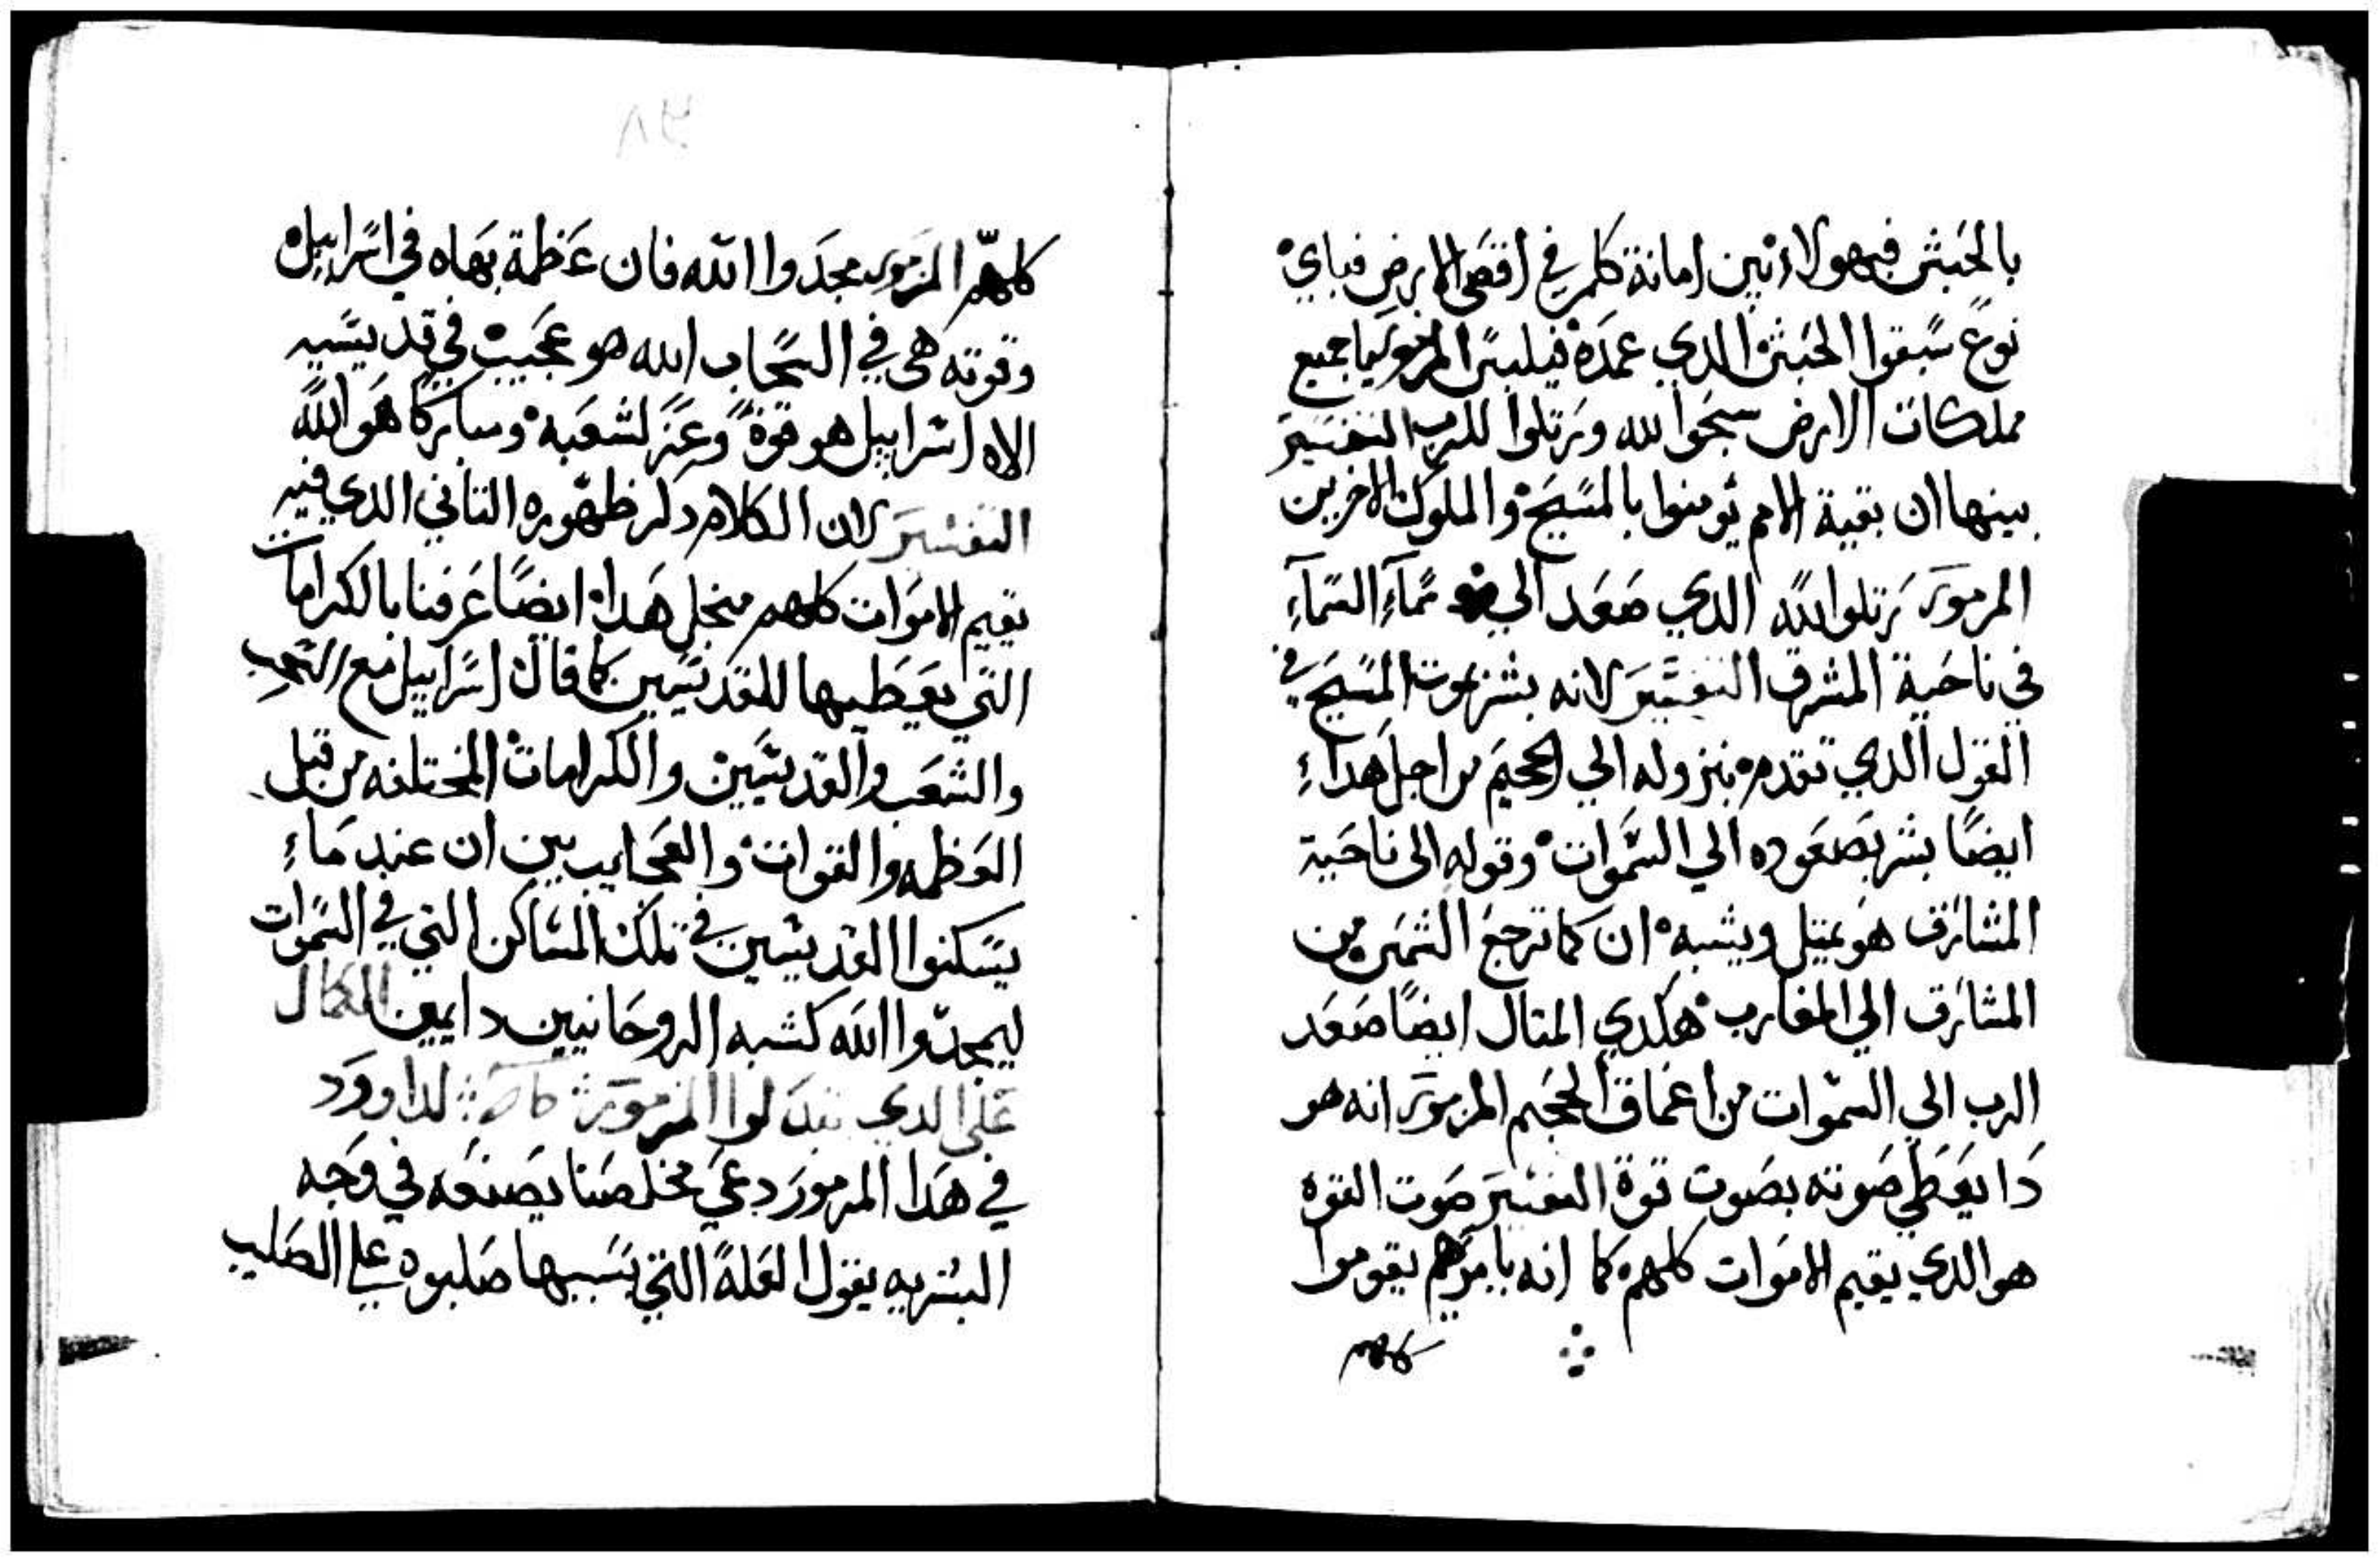 بالحبش فبهولاء نبين امانة كلمن في اقصى الارض فباي
نوع سبقوا الحبش الدي عمده فيلبس المزمور يا جميع
مملكات الارض سبحوا لله ورتلوا للرب التفسير
بينها ان بقية الامم تومنوا بالمسيح والملوك الاخرين
المزمور رتلوا لله الدي صعد الي سماء السماء
في ناحية المشرق التفسير لانه بشر بموت المسيح في
القول الدي تقدم بنزوله الي الجحيم من اجل هدا
ايضا بشر بصعوده الي السموات وقوله الى ناحية
المشارق هو يمتل ويشبه ان كما ترجع الشمس من
المشارق الي المغارب هكدي المتال ايضا صعد
الرب الي السموات من اعماق الجحيم المزمور انه هو
دا يعطي صوته بصوت قوة التفسير صوت القوه
هو الدي يقيم الاموات كلهم كما انه بامرهم يقوموا
كلهم
٨٢
كلهم المزمور مجدوا الله فان عظمة بهاه في اسراييل
وقوته هى في السحاب الله هو عجيب في قديسيه
الاه اسراييل هو قوة وعز لشعبه ومباركا هو الله
التفسير لان الكلام دكر ظهوره التاني الدي فيه
يقيم الاموات كلهم منجل هدا ايضا عرفنا بالكرامات
التي يعطيها للقديسين كما قال اسراييل مع السحب
والشعب والقديسين والكرامات المختلفه من قبل
العظمه والقوات والعجايب بين ان عند ما
يسكنوا القديسين في تلك المساكن التي في السموات
ليمجدوا الله كشبه الروحانيين دايمين الكمال
على الدي يتبدلوا المزمور لداوود
في هدا المزمور دعي مخلصنا يصنعه في وجه
البشريه يقول العلة التي بسببها صلبوه علي الصليب